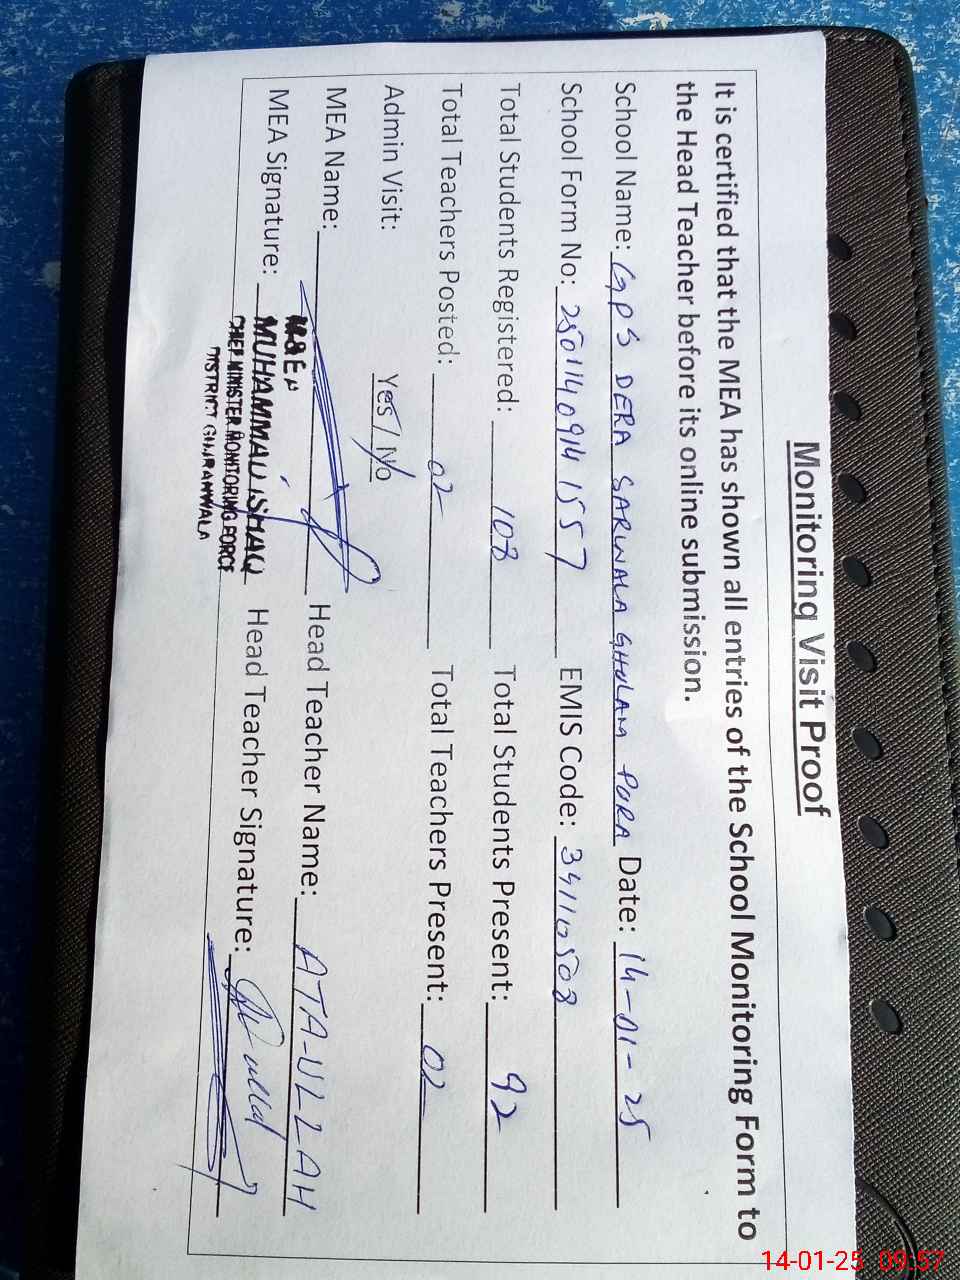 Monitoring Visit Proof
It is certified that the MEA has shown all entries of the School Monitoring Form to
the Head Teacher before its online submission.
School Name: GPS DERA SARWALA GHULAM PURA Date: 14-01-25
School Form No: 2501140914 1557 EMIS Code: 34110508
Total Students Registered: 108 Total Students Present: 92
Total Teachers Posted: 02 Total Teachers Present: 02
Admin Visit: Yes / No
MEA Name: Head Teacher Name: ATA-ULLAH
MEA Signature: MUHAMMAD ISHAQ Head Teacher Signature:
CHIEF MINISTER MONITORING FORCE
DISTRICT GUJRANWALA
14-01-25 09:57